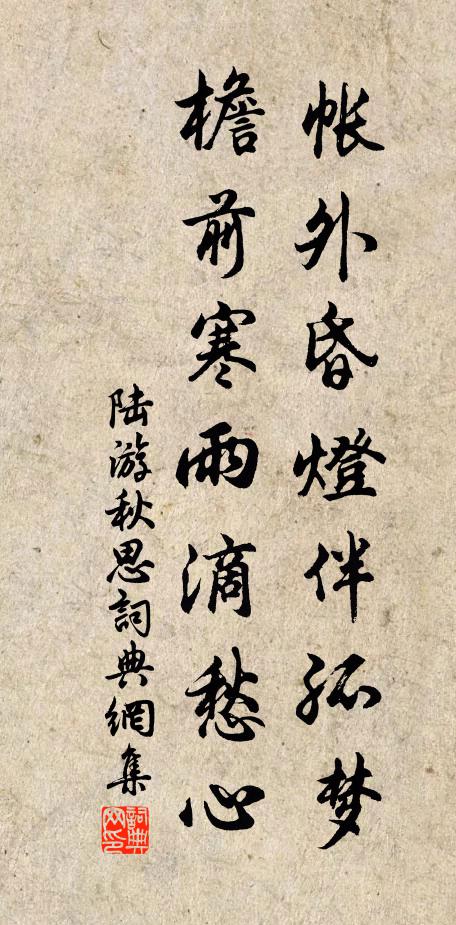 帐外昏燈伴孤梦
檐前寒雨滴愁心
陆游秋思詞典網集
詞典网印